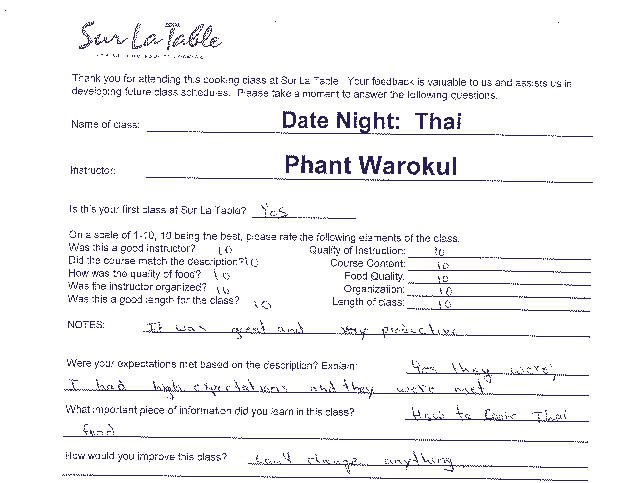 Sur La Table
Thank you for attending this cooking class at Sur La Table. Your feedback is valuable to us and assists us in
developing future class schedules. Please take a moment to answer the following questions.
Name of class: Date Night: Thai
Instructor: Phant Warokul
Is this your first class at Sur La Table? Yes
On a scale of 1-10, 10 being the best, please rate the following elements of the class.
Was this a good instructor? 10 Quality of Instruction: 10
Did the course match the description? 10 Course Content: 10
How was the quality of food? 10 Food Quality: 10
Was the instructor organized? 10 Organization: 10
Was this a good length for the class? 10 Length of class: 10
NOTES: It was great and very productive
Were your expectations met based on the description? Explain: Yes they were,
I had high expectations and they were met
What important piece of information did you learn in this class? How to Cook Thai
food
How would you improve this class? can't change anything